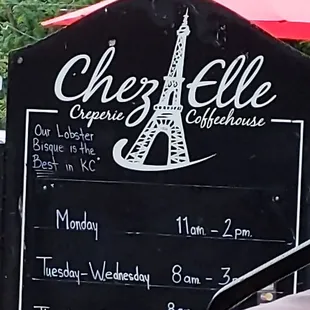 Chez Elle
Creperie Coffeehouse
Our Lobster
Bisque is the
Best in KC"
Monday 11am - 2pm.
Tuesday-Wednesday 8am - 3